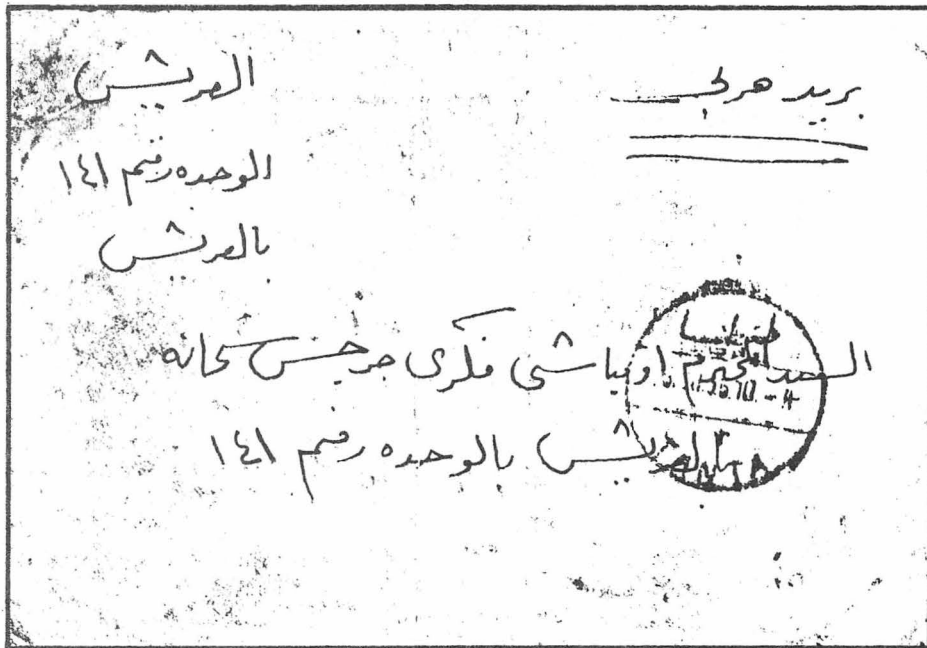 بريد حربى
العريش
الوحده رقم ١٤١
بالعريش
السيد المحترم اونباشى فكرى جرجس شحاته
بالعريش بالوحده رقم ١٤١
طنطا